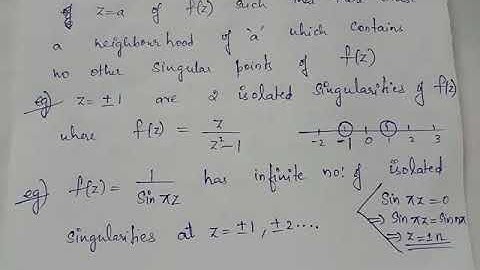 z=a of f(z) such
a neighbourhood of 'a' which contains
no other singular points of f(z)
eg) z = ±1 are 2 isolated singularities of f(z)
where f(z) = z / z²-1
-2 -1 0 1 2 3
eg) f(z) = 1 / Sin πz has infinite no: of isolated
singularities at z = ±1, ±2....
Sin πz = 0
⇒ Sin πz = Sin nπ
⇒ z = ±n